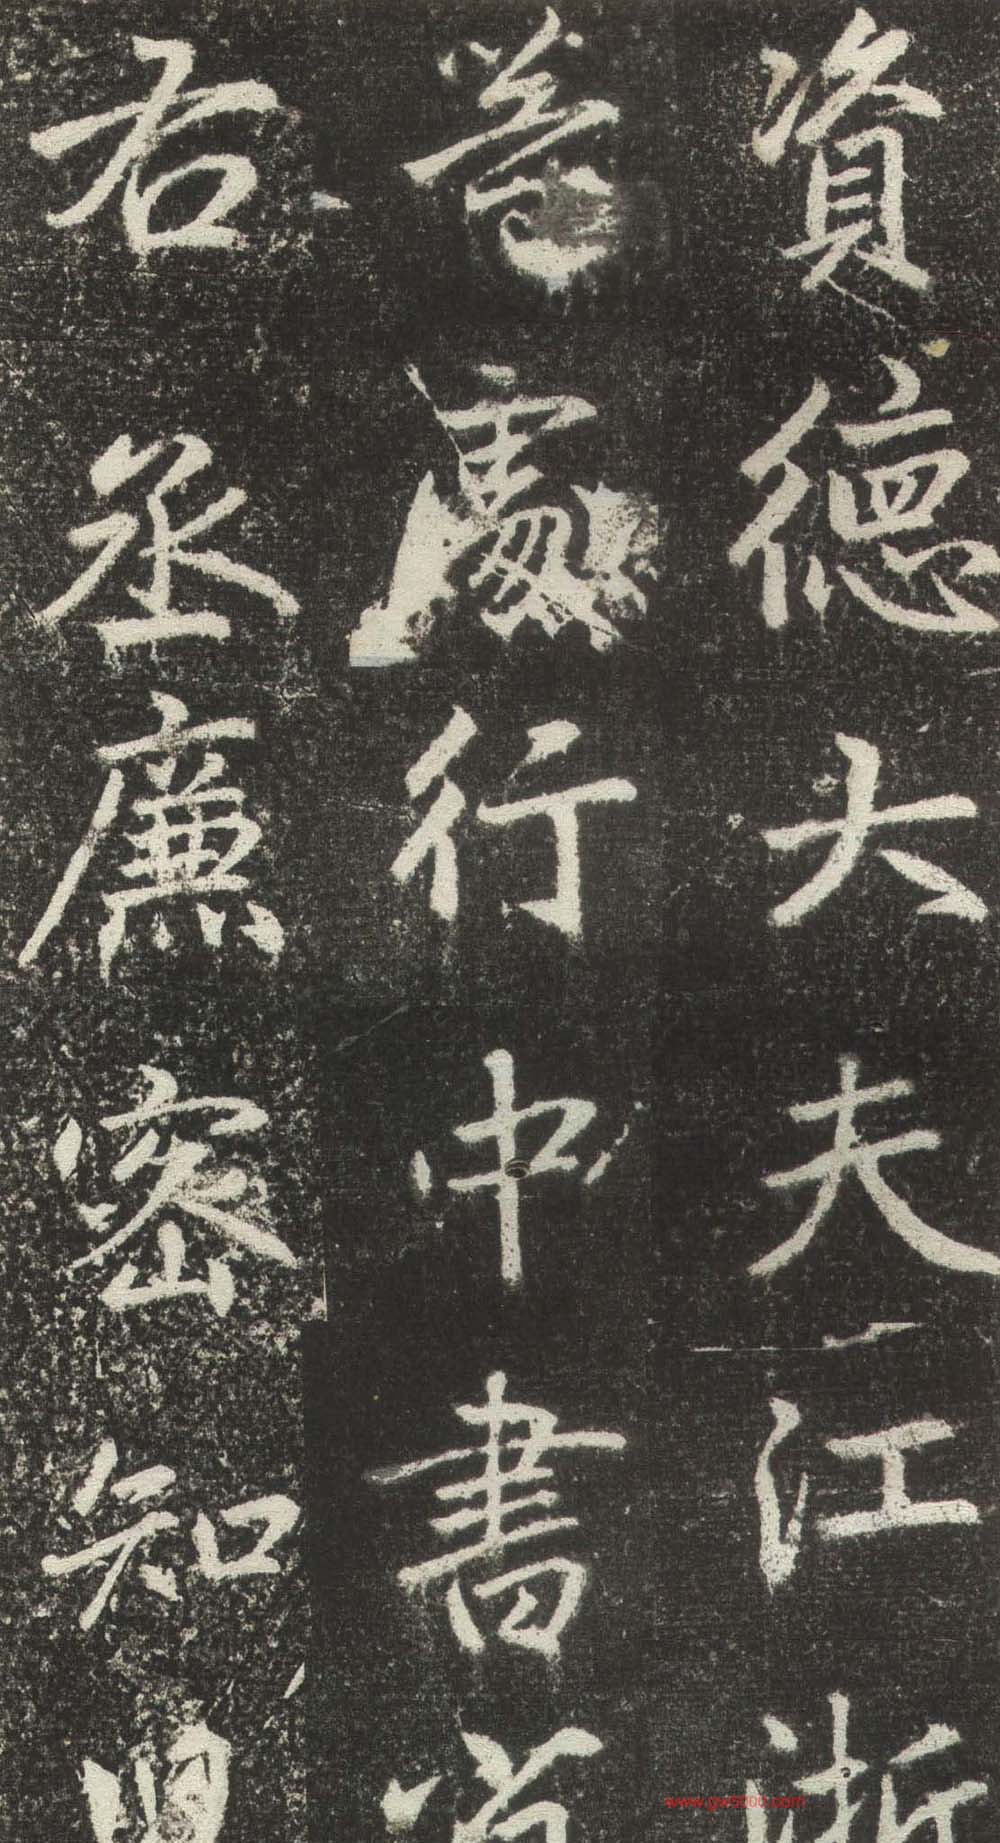 資德大夫江浙
等處行中書省
右丞廉密知
www.gw5000.com